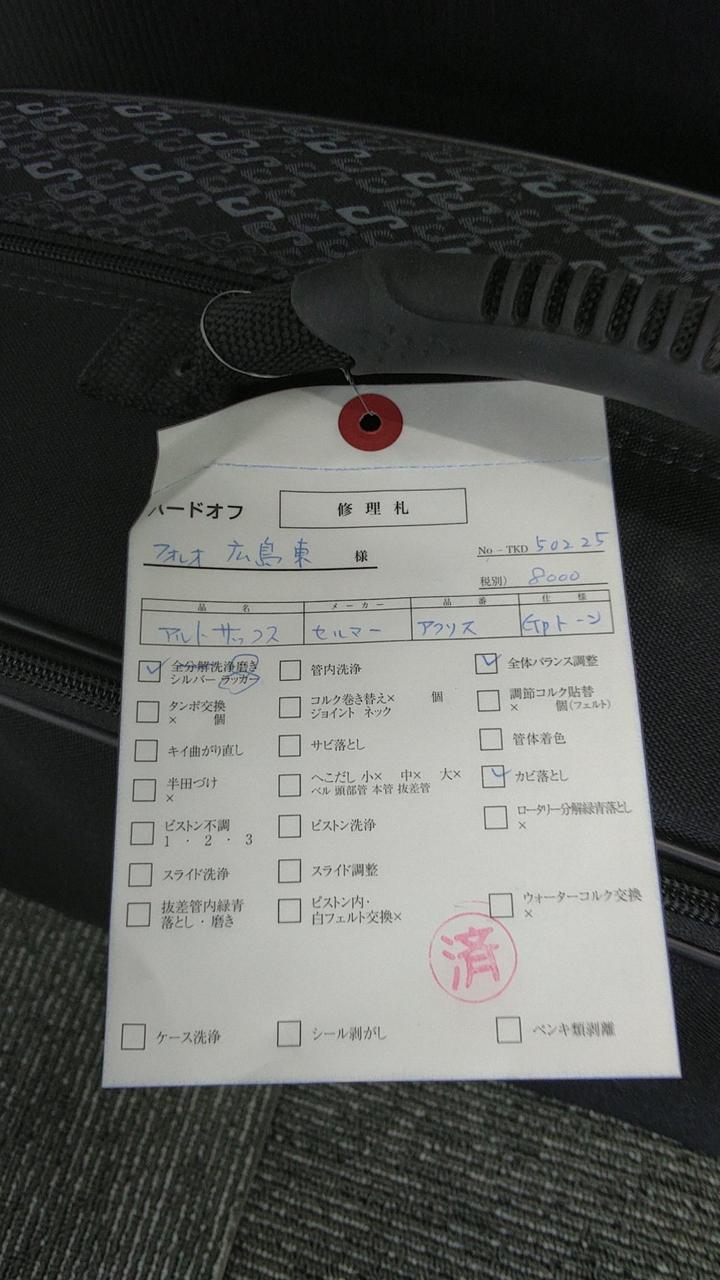 ハードオフ
修理札
フォレオ 広島東 様
No－TKD 50225
税別) 8000
品名 メーカー 品番 仕様
アルトサックス セルマー アクソス Gpトーン
全分解洗浄磨き
シルバー ラッカー
管内洗浄
全体バランス調整
タンポ交換
× 個
コルク巻き替え× 個
ジョイント ネック
調節コルク貼替
× 個(フェルト)
キイ曲がり直し
サビ落とし
管体着色
半田づけ
×
へこだし 小× 中× 大×
ベル 頭部管 本管 抜差管
カビ落とし
ピストン不調
1 ・ 2 ・ 3
ピストン洗浄
ロータリー分解緑青落とし
×
スライド洗浄
スライド調整
抜差管内緑青
落とし・磨き
ピストン内・
白フェルト交換×
ウォーターコルク交換
×
済
ケース洗浄
シール剥がし
ペンキ類剥離